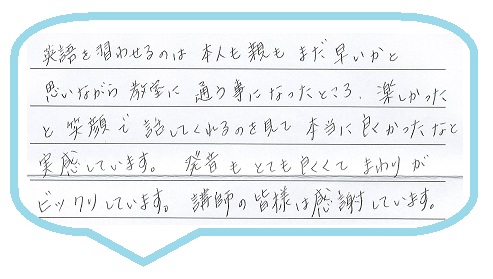 英語を習わせるのは 本人も親も まだ早いかと
思いながら 教室に 通う事になったところ、楽しかった
と 笑顔で 話してくれるのを見て 本当に良くかったなと
実感しています。 発音も とても良くくて まわりが
ビックリしています。 講師の皆様は感謝しています。